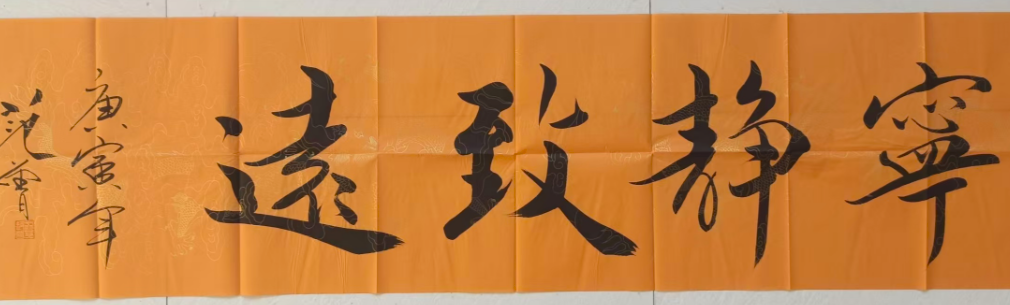 寧静致遠
庚寅年
范曾